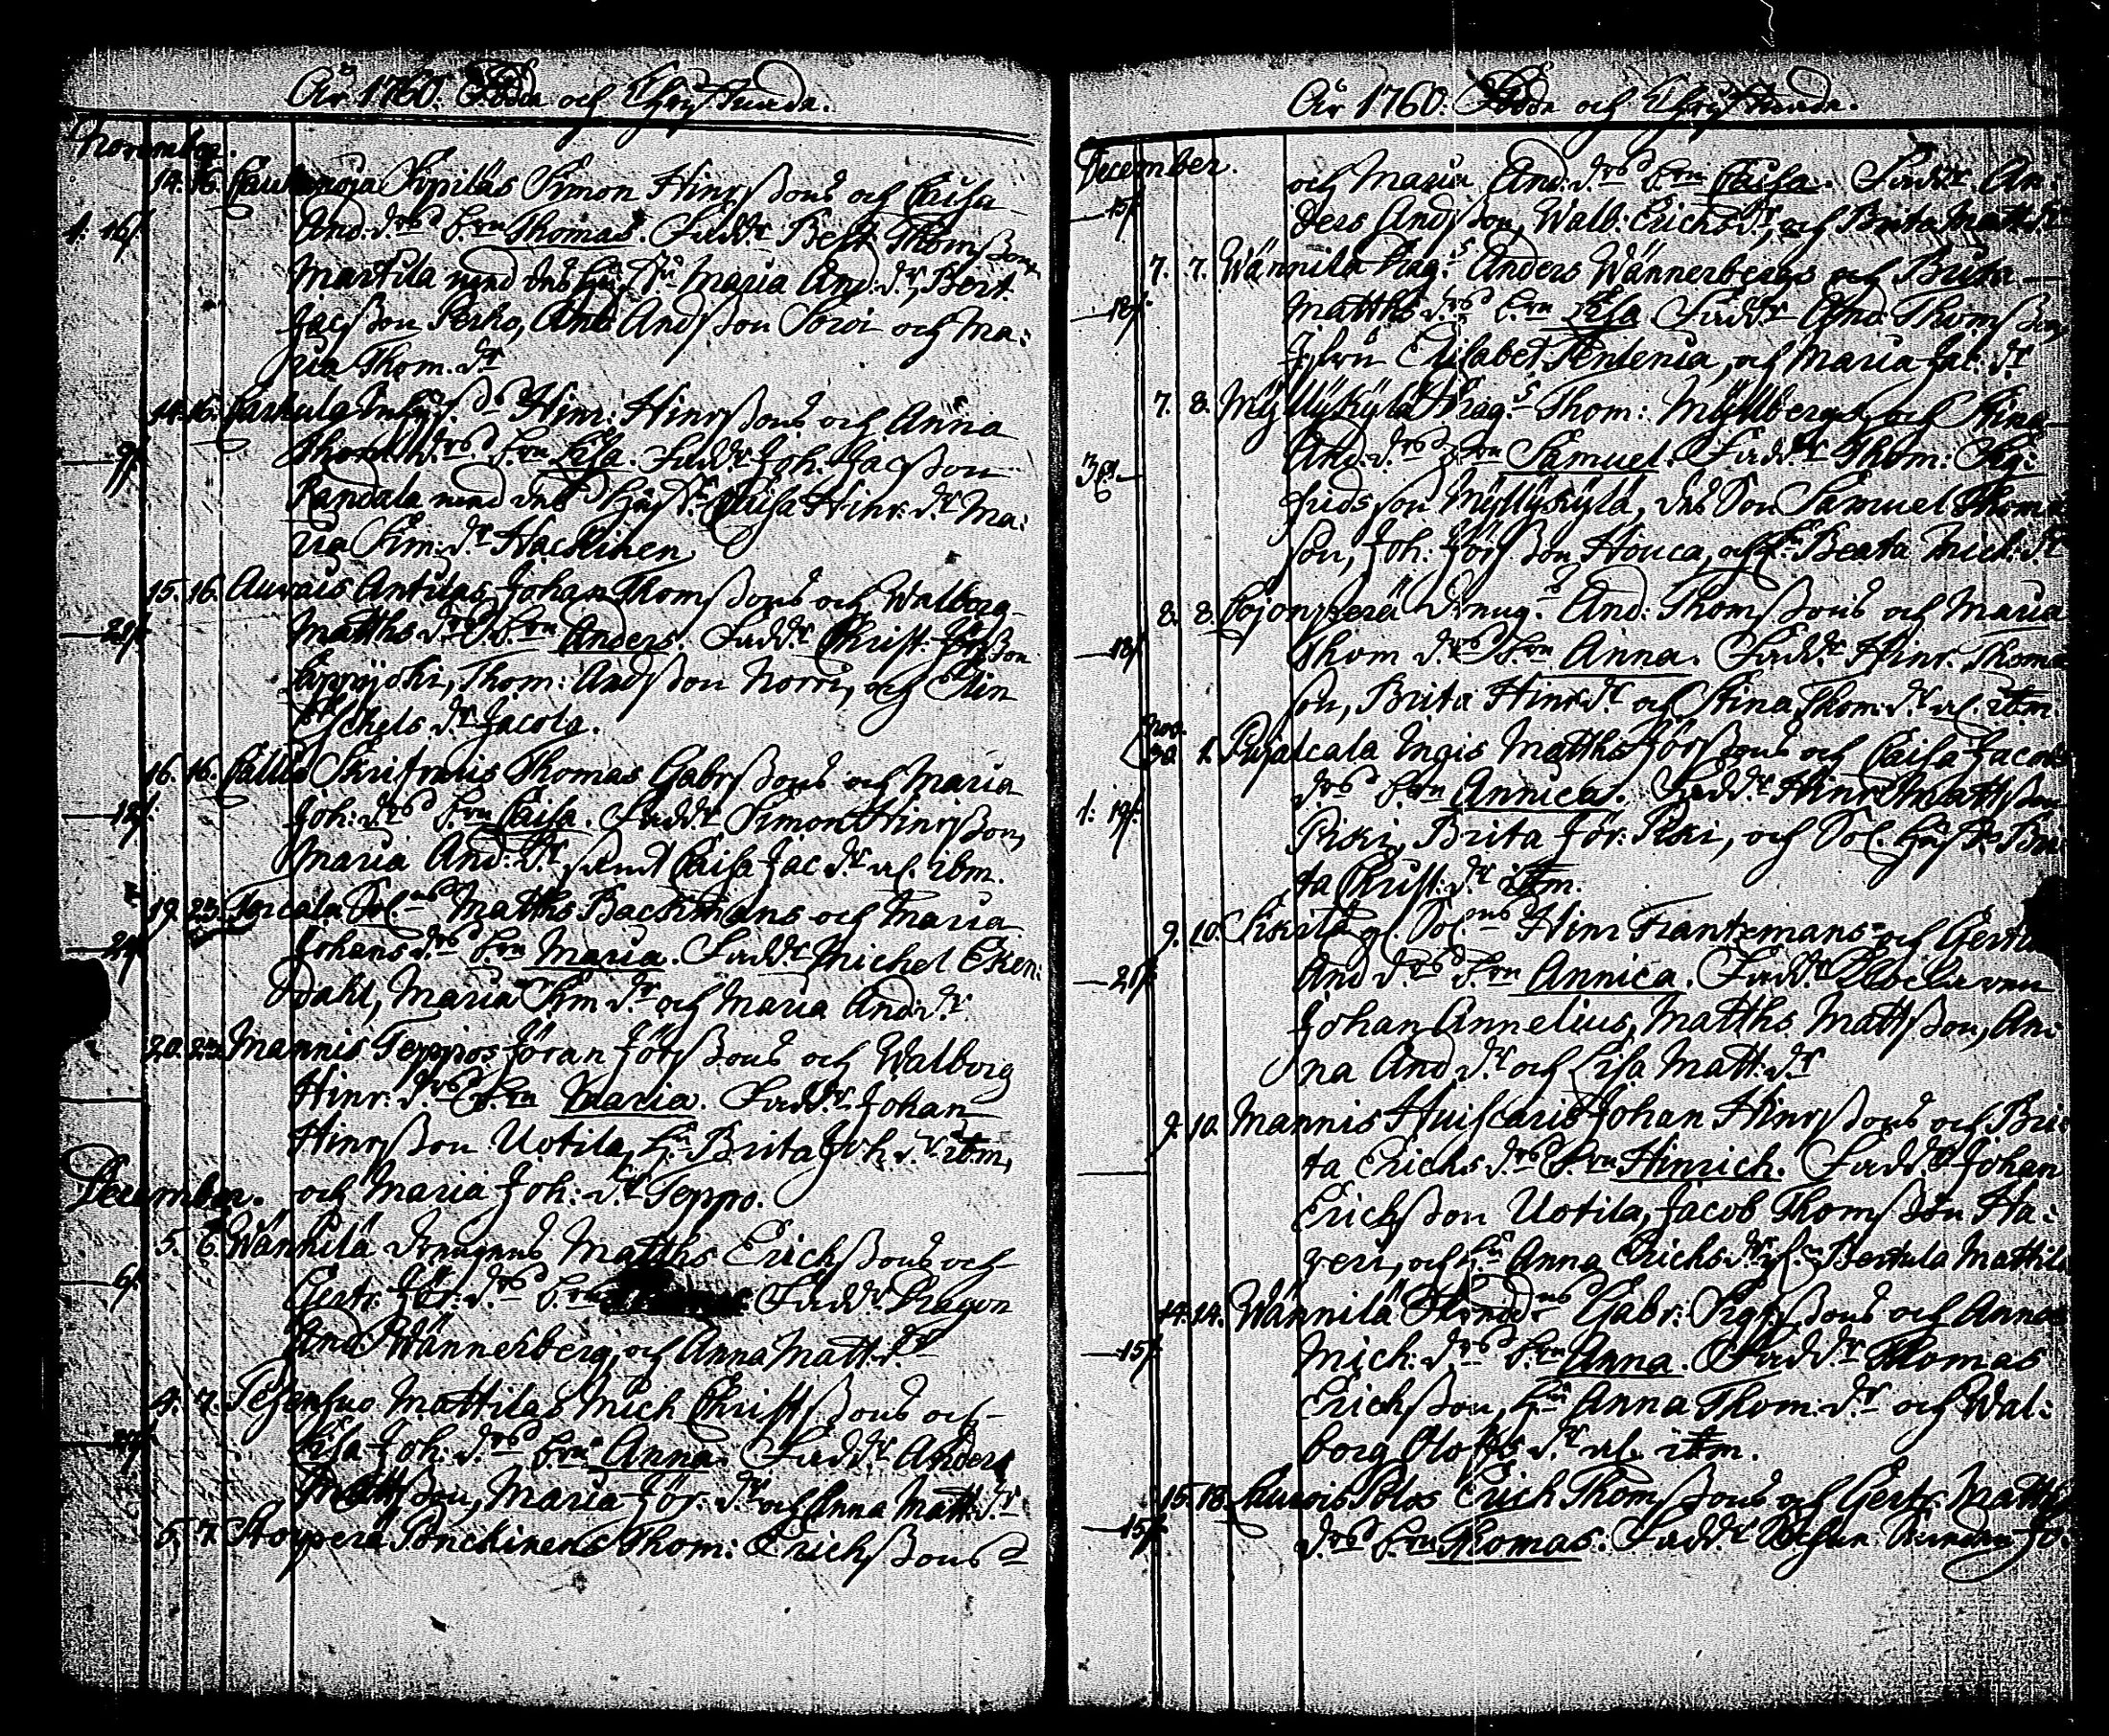 År 1760. Födda och Christnade.
November.
14. 16. Simon Hinrssons och Caisa
1. 16/. And: drs b:rn Thomas. Fadd:r Thomsson
Martila med dess hust:u Maria And: d:r, Bert.
Jacsson Perho, And Andsson Sorri och Ma:
ria Thom. d:r
14. 16. Hinr: Hinrssons och Anna
Thom: d:rs b:rn Lisa. Fadd:r Joh. Jacsson
Randala med dess hust:u Caisa Hinr: d:r Ma:
ria Sim: d:r Hackinen
15. 16. Auvais Antilas Johan Thomssons och Walborg
Matths d:rs b:rn Anders. Fadd:r Christ.
Thom: Andsson Norri, och Elin
Eschels d:r Jacola.
16. 16. Thomas Gabrssons och Maria
Joh: d:rs b:rn Caisa. Fadd:r Simon Hinrsson,
Maria And: d:r samt Caisa Jac d:r al. ibm.
19. 23. Torcala Sol:ns Matths Backmans och Maria
Johans d:rs b:rn Maria. Fadd:r Michel Eken:
dahl, Maria Sim d:r och Maria And: d:r
20. 23. Mannis Teppos Jöran Jörssons och Walborg
Hinr: d:rs b:rn Maria. Fadd:r Johan
Hinrsson Uotila, h:u Brita Joh. d:r ibm,
December. och Maria Joh: d:r Teppo.
5. 6. Wännilä drengens Matths Erichssons och
Gertr. Jör: d:rs b:rn Fadd:r Dragon
And: Wännerberg, och Anna Matt. d:r
4. 7. Mattilas Mich Christssons och
Lisa Joh: d:rs b:rn Anna. Fadd:r Anders
Mattsson, Maria Jör: d:r och Anna Matt: d:r
5. 7. Ponckinens Thom: Erichssons
År 1760. Födda och Christnade.
December. och Maria And: d:rs b:rn Caisa. Fadd:r An:
15/. ders Andsson, Walb. Erichs d:r, och Brita Matt. d:r
7. 7. Wännilä Drag:s Anders Wännerbergs och Brita
18/. Matths d:rs b:rn Lisa Fadd:r And: Thomsson,
Elisabet Penlenia, och Maria Jac: d:r
7. 8. Myllykylä Drag:s Thom: Myllbergs och Stina
And: d:rs b:rn Samuel. Fadd:r Thom: Sig:
fridsson Myllykylä, dess Son Samuel Thoms
son, Joh: Jörsson Houca, och h:u Beata Mich: d:r
8. 8. dreng:s And: Thomssons och Maria
18/. Thom d:rs b:rn Anna. Fadd:r Hinr. Thoms
son, Brita Hinr d:r och Stina Thom: d:r al. ibm.
Nov. 30. 1. Pujalcala Matths Jörssons och Caisa Jacobs
d:rs b:rn Annica. Fadd:r Hinr Mattsson
1: 19/. Piski, Brita Jör: Piski, och Sol. hust:u Bri
ta Christ: d:r ibm.
9. 10. Sol:ns Hinr Frantzmans och Gertr
21/. And d:rs b:rn Annica. Fadd:r Klockaren
Johan Annelius, Matths Mattsson, An:
na And d:r och Lisa Matt: d:r
9. 10. Mannis Huiscaris Johan Hinrssons och Bri
ta Erichs d:rs b:rn Hinrich. Fadd:r Johan
Erichsson Uotila, Jacob Thomsson Ha:
veri, och h:u Anna Erichs d:r Bertula Mattila
14. 14. Wännilä Gabr: Sigfssons och Anna
15/. Mich: d:rs b:rn Anna. Fadd:r Thomas
Erichsson, h:u Anna Thom: d:r och Wal:
borg Olofs d:r al. ibm.
15. 18. Auvois Polos Erich Thomssons och Gertr. Matth
15/. d:rs b:rn Thomas. Fadd:r Jo: